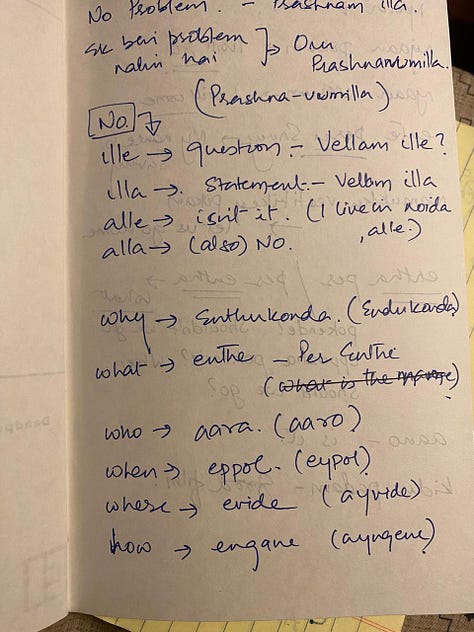 No Problem. - Prashnam illa.
ek bhi problem
nahin hai
} → Oru
Prashnavumilla.
(Prashna-vumilla)
No.
ille → question - Vellam ille?
illa → statement - Vellam illa
alle → isn't it. (I live in noida
, alle.)
alla → (also) No.
why → Enthukonda. (Endukonda)
what → enthe - Per Enthe
(what is the name)
who → aara. (aaro)
when → eppol. (eypol)
where → evide (ayvide)
how → engane (ayngene)